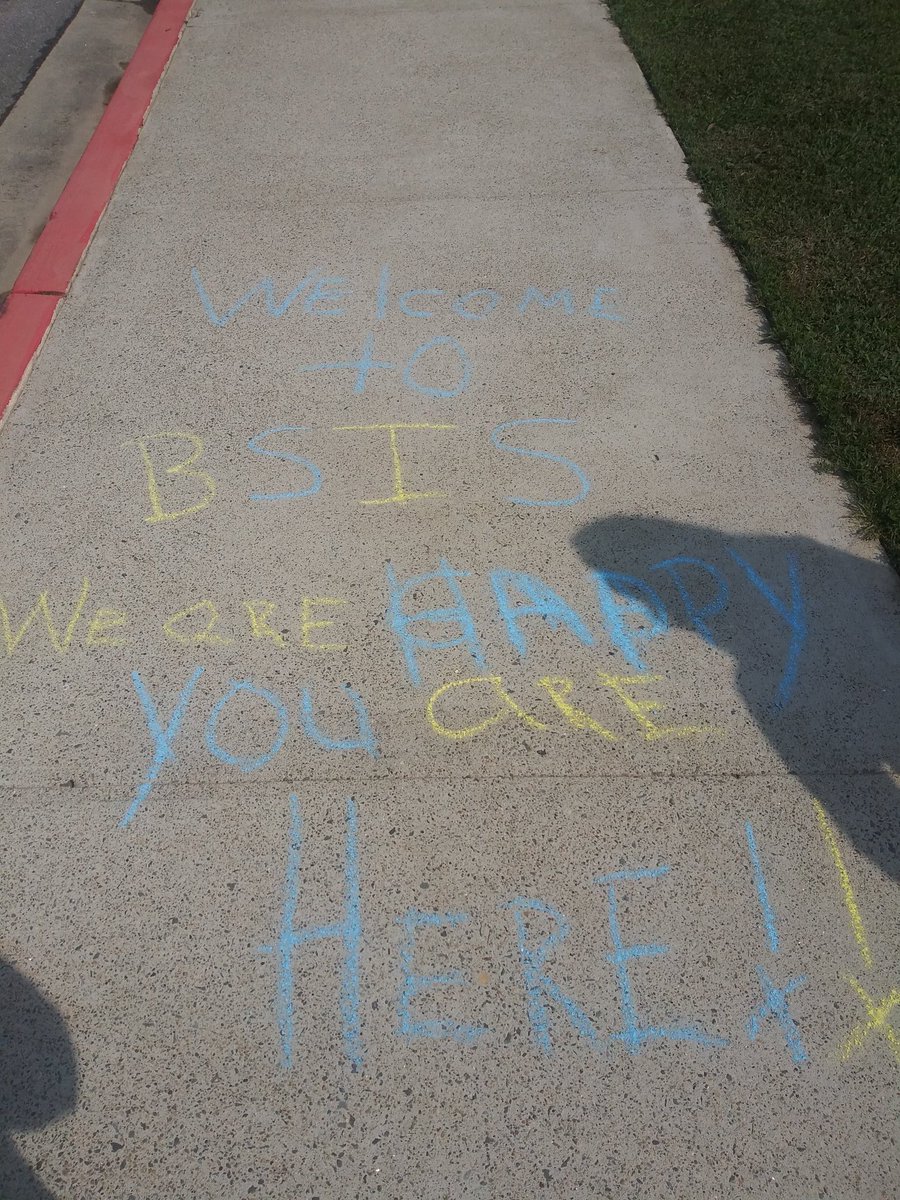 Welcome
to
BSIS
We are HAPPY
you are
HERE!!